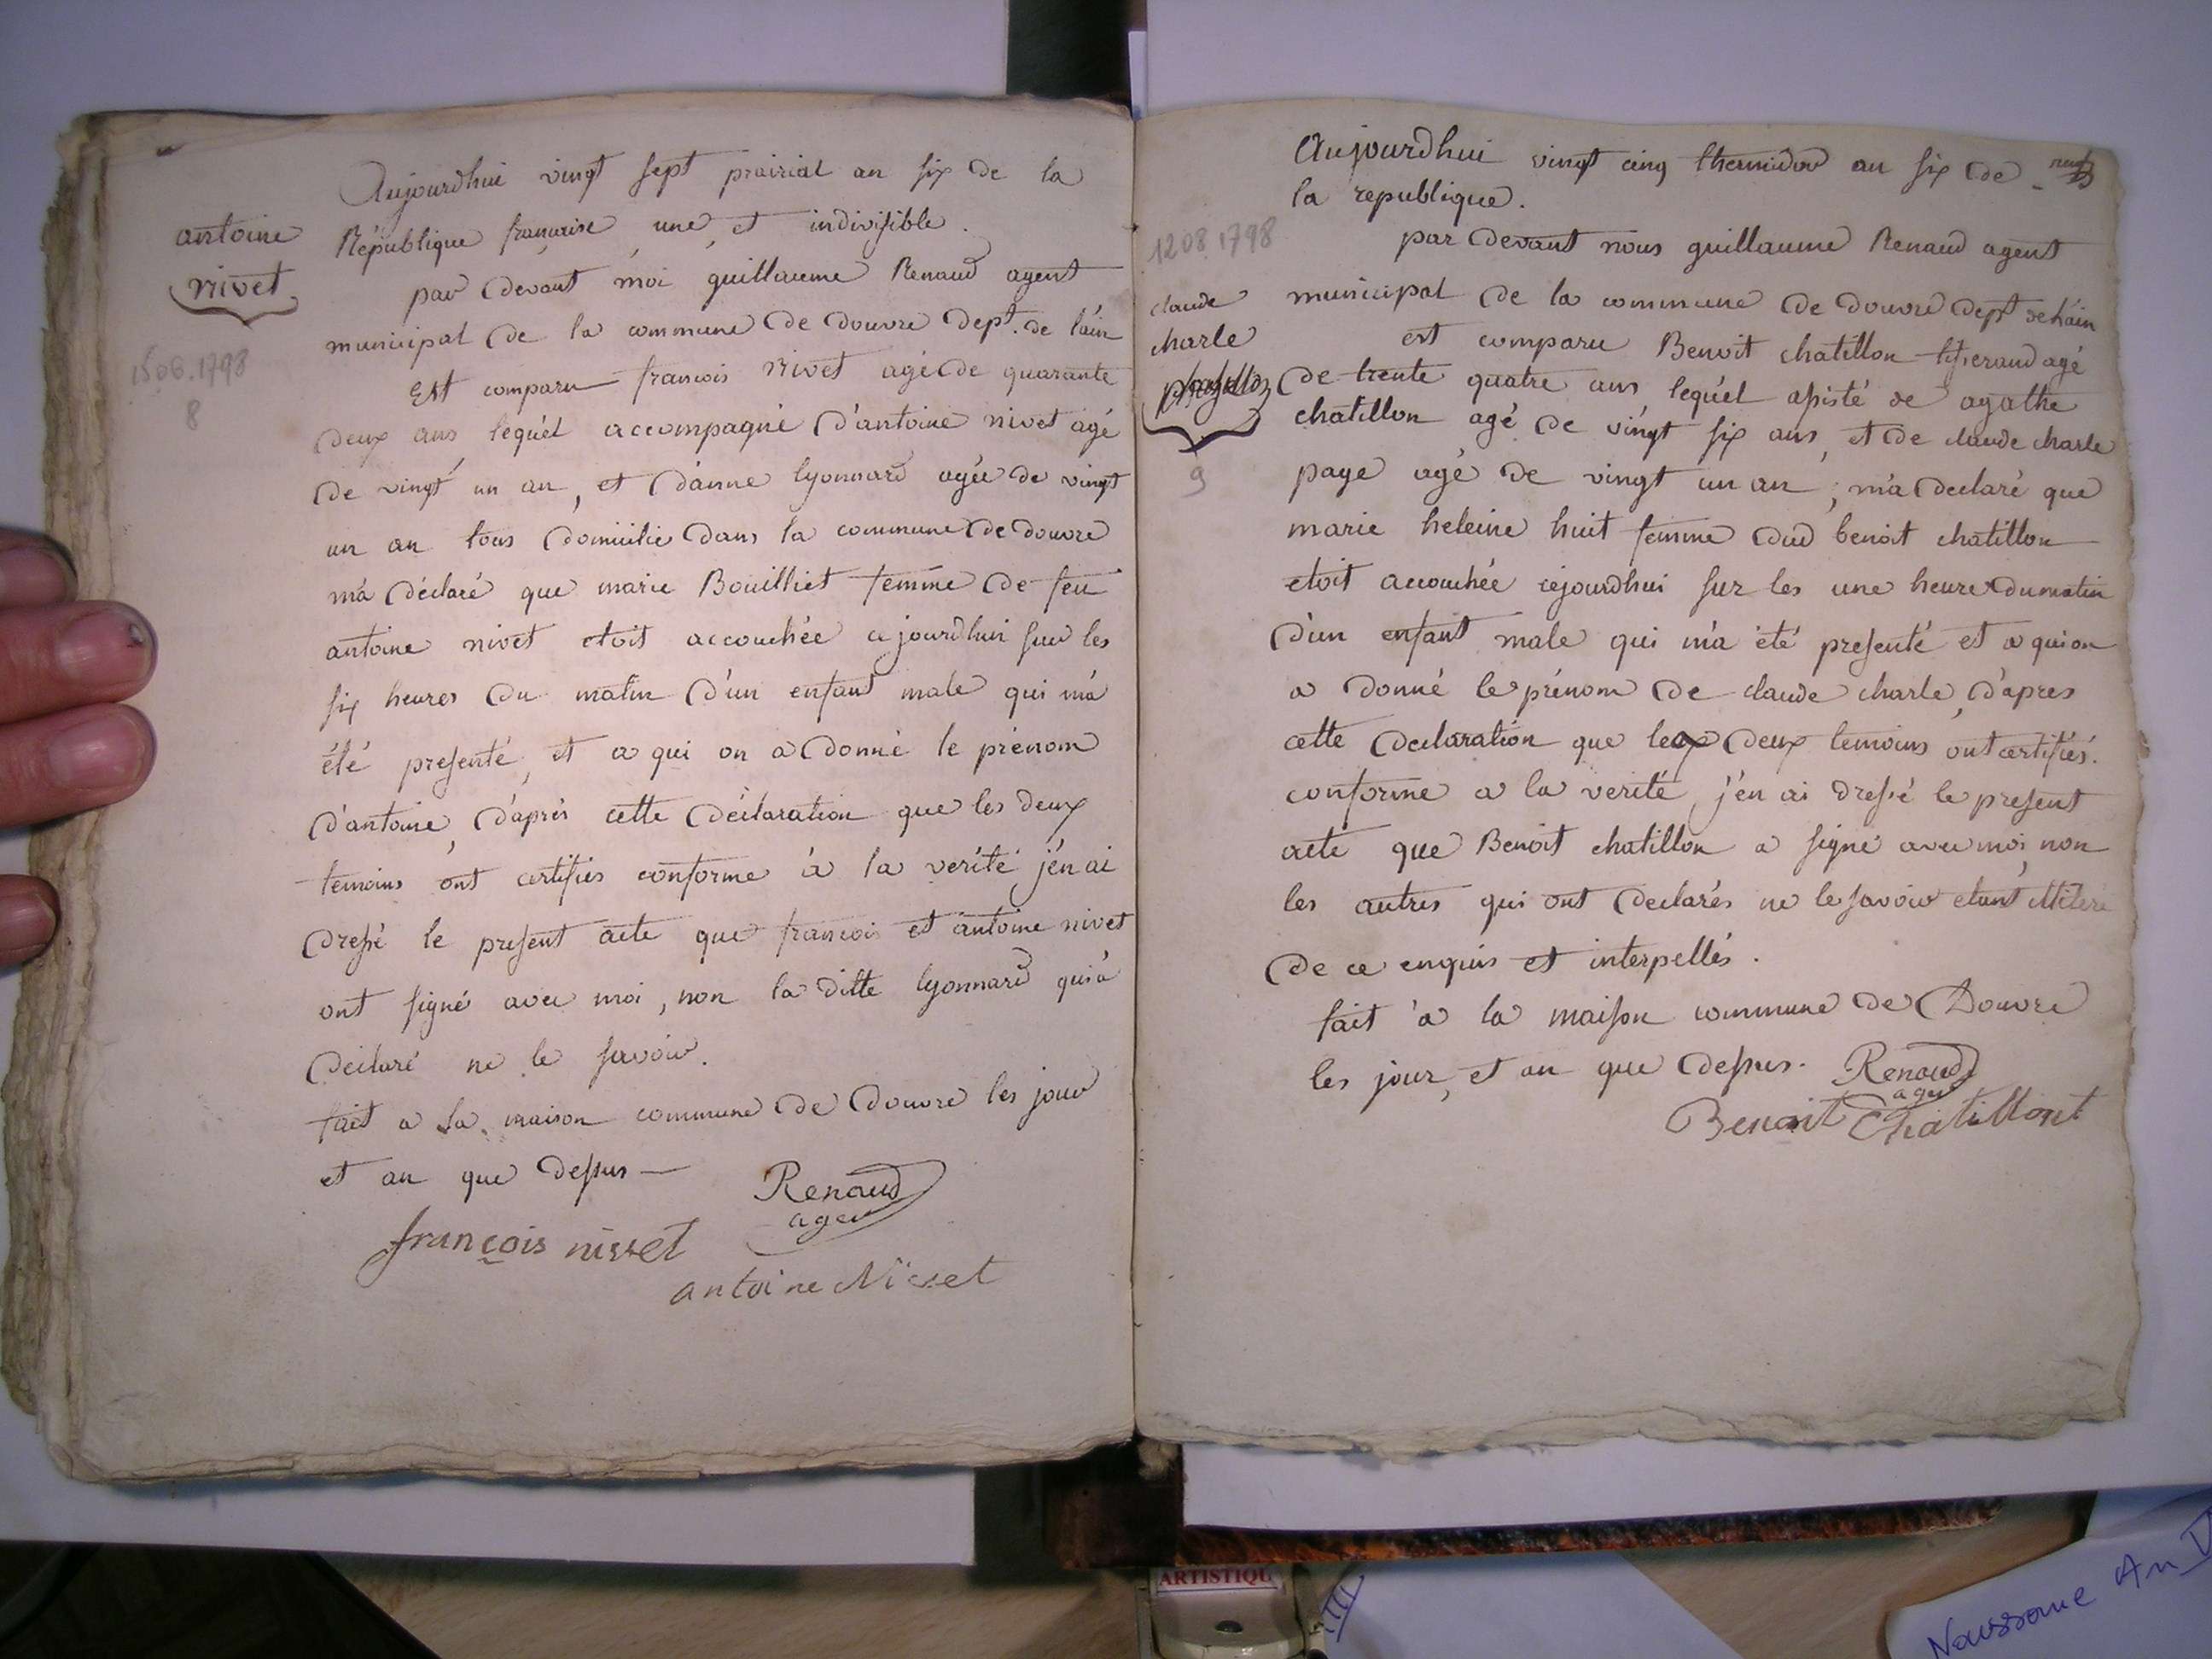 antoine
nivet
1506.1798
8
Aujourdhui vingt sept prairial an six de la
République francaise une, et indivisible.
par devant moi guillaume Renaud agent
municipal de la commune de douvre dept. de l'ain
Est comparu francois nivet agé de quarante
deux ans lequél accompagné d'antoine nivet agé
de vingt un an, et d'anne lyonnard agée de vingt
un an tous domicilié dans la commune de douvre
m'a déclaré que marie Bouilliet femme de feu
antoine nivet etoit accouchée ce jourdhui sur les
six heures du matin d'un enfant male qui m'a
été presenté, et a qui on a donné le prénom
d'antoine, d'aprés cette déclaration que les deux
temoins ont certifiés conforme à la verité j'en ai
dressé le present acte que francois et antoine nivet
ont signé avec moi, non la ditte lyonnard qui a
déclaré ne le savoir.
fait a la maison commune de douvre les jour
et an que dessus —
Renaud
agent
françois nivet
antoine Nivet
neuf
Aujourdhui vingt cinq thermidor an six de
la republique.
1208.1798
claude
charle
9
par devant nous guillaume Renaud agent
municipal de la commune de douvre dept de l'ain
est comparu Benoit chatillon tisserand agé
de trente quatre ans lequél assisté de agathe
chatillon agé de vingt six ans, et de claude charle
page agé de vingt un an, m'a declaré que
marie heleine huit femme dud benoit chatillon
etoit accouchée cejourdhui sur les une heure du matin
d'un enfant male qui m'a été presenté et a qui on
a donné le prénom de claude charle, d'apres
cette declaration que les deux temoins ont certifiés.
conforme a la verité, j'en ai dressé le present
acte que Benoit chatillon a signé avec moi, non
les autres qui ont declarés ne le savoir etant illiteré
de ce enquis et interpellés.
fait à la maison commune de Douvre
les jour, et an que dessus.
Renaud
agent
Benoit Chatillont
ARTISTIQU
III
Naissance An V